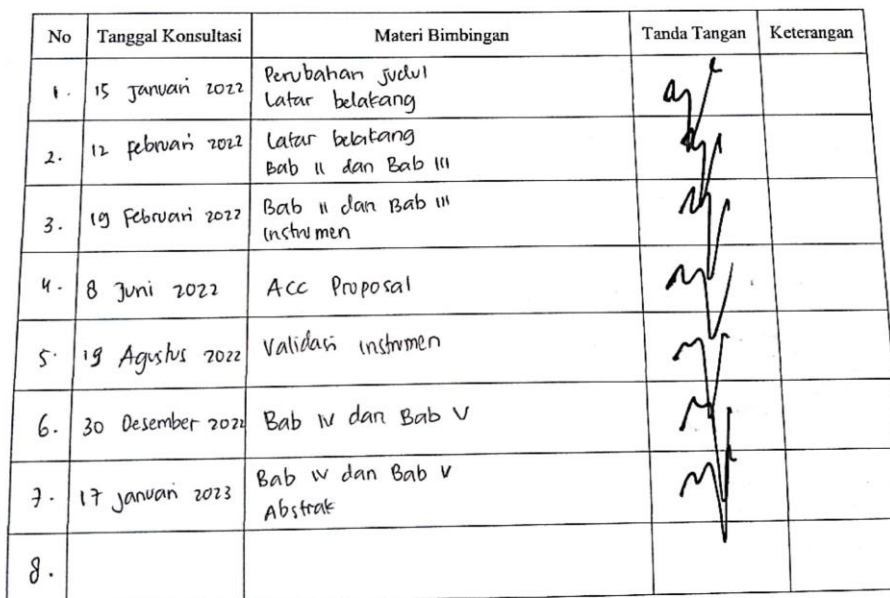 No Tanggal Konsultasi Materi Bimbingan Tanda Tangan Keterangan
1. 15 Januari 2022 Perubahan Judul
Latar belakang
2. 12 Februari 2022 Latar belakang
Bab II dan Bab III
3. 19 Februari 2022 Bab II dan Bab III
Instrumen
4. 8 Juni 2022 Acc Proposal
5. 19 Agustus 2022 Validasi instrumen
6. 30 Desember 2022 Bab IV dan Bab V
7. 17 Januari 2023 Bab IV dan Bab V
Abstrak
8.